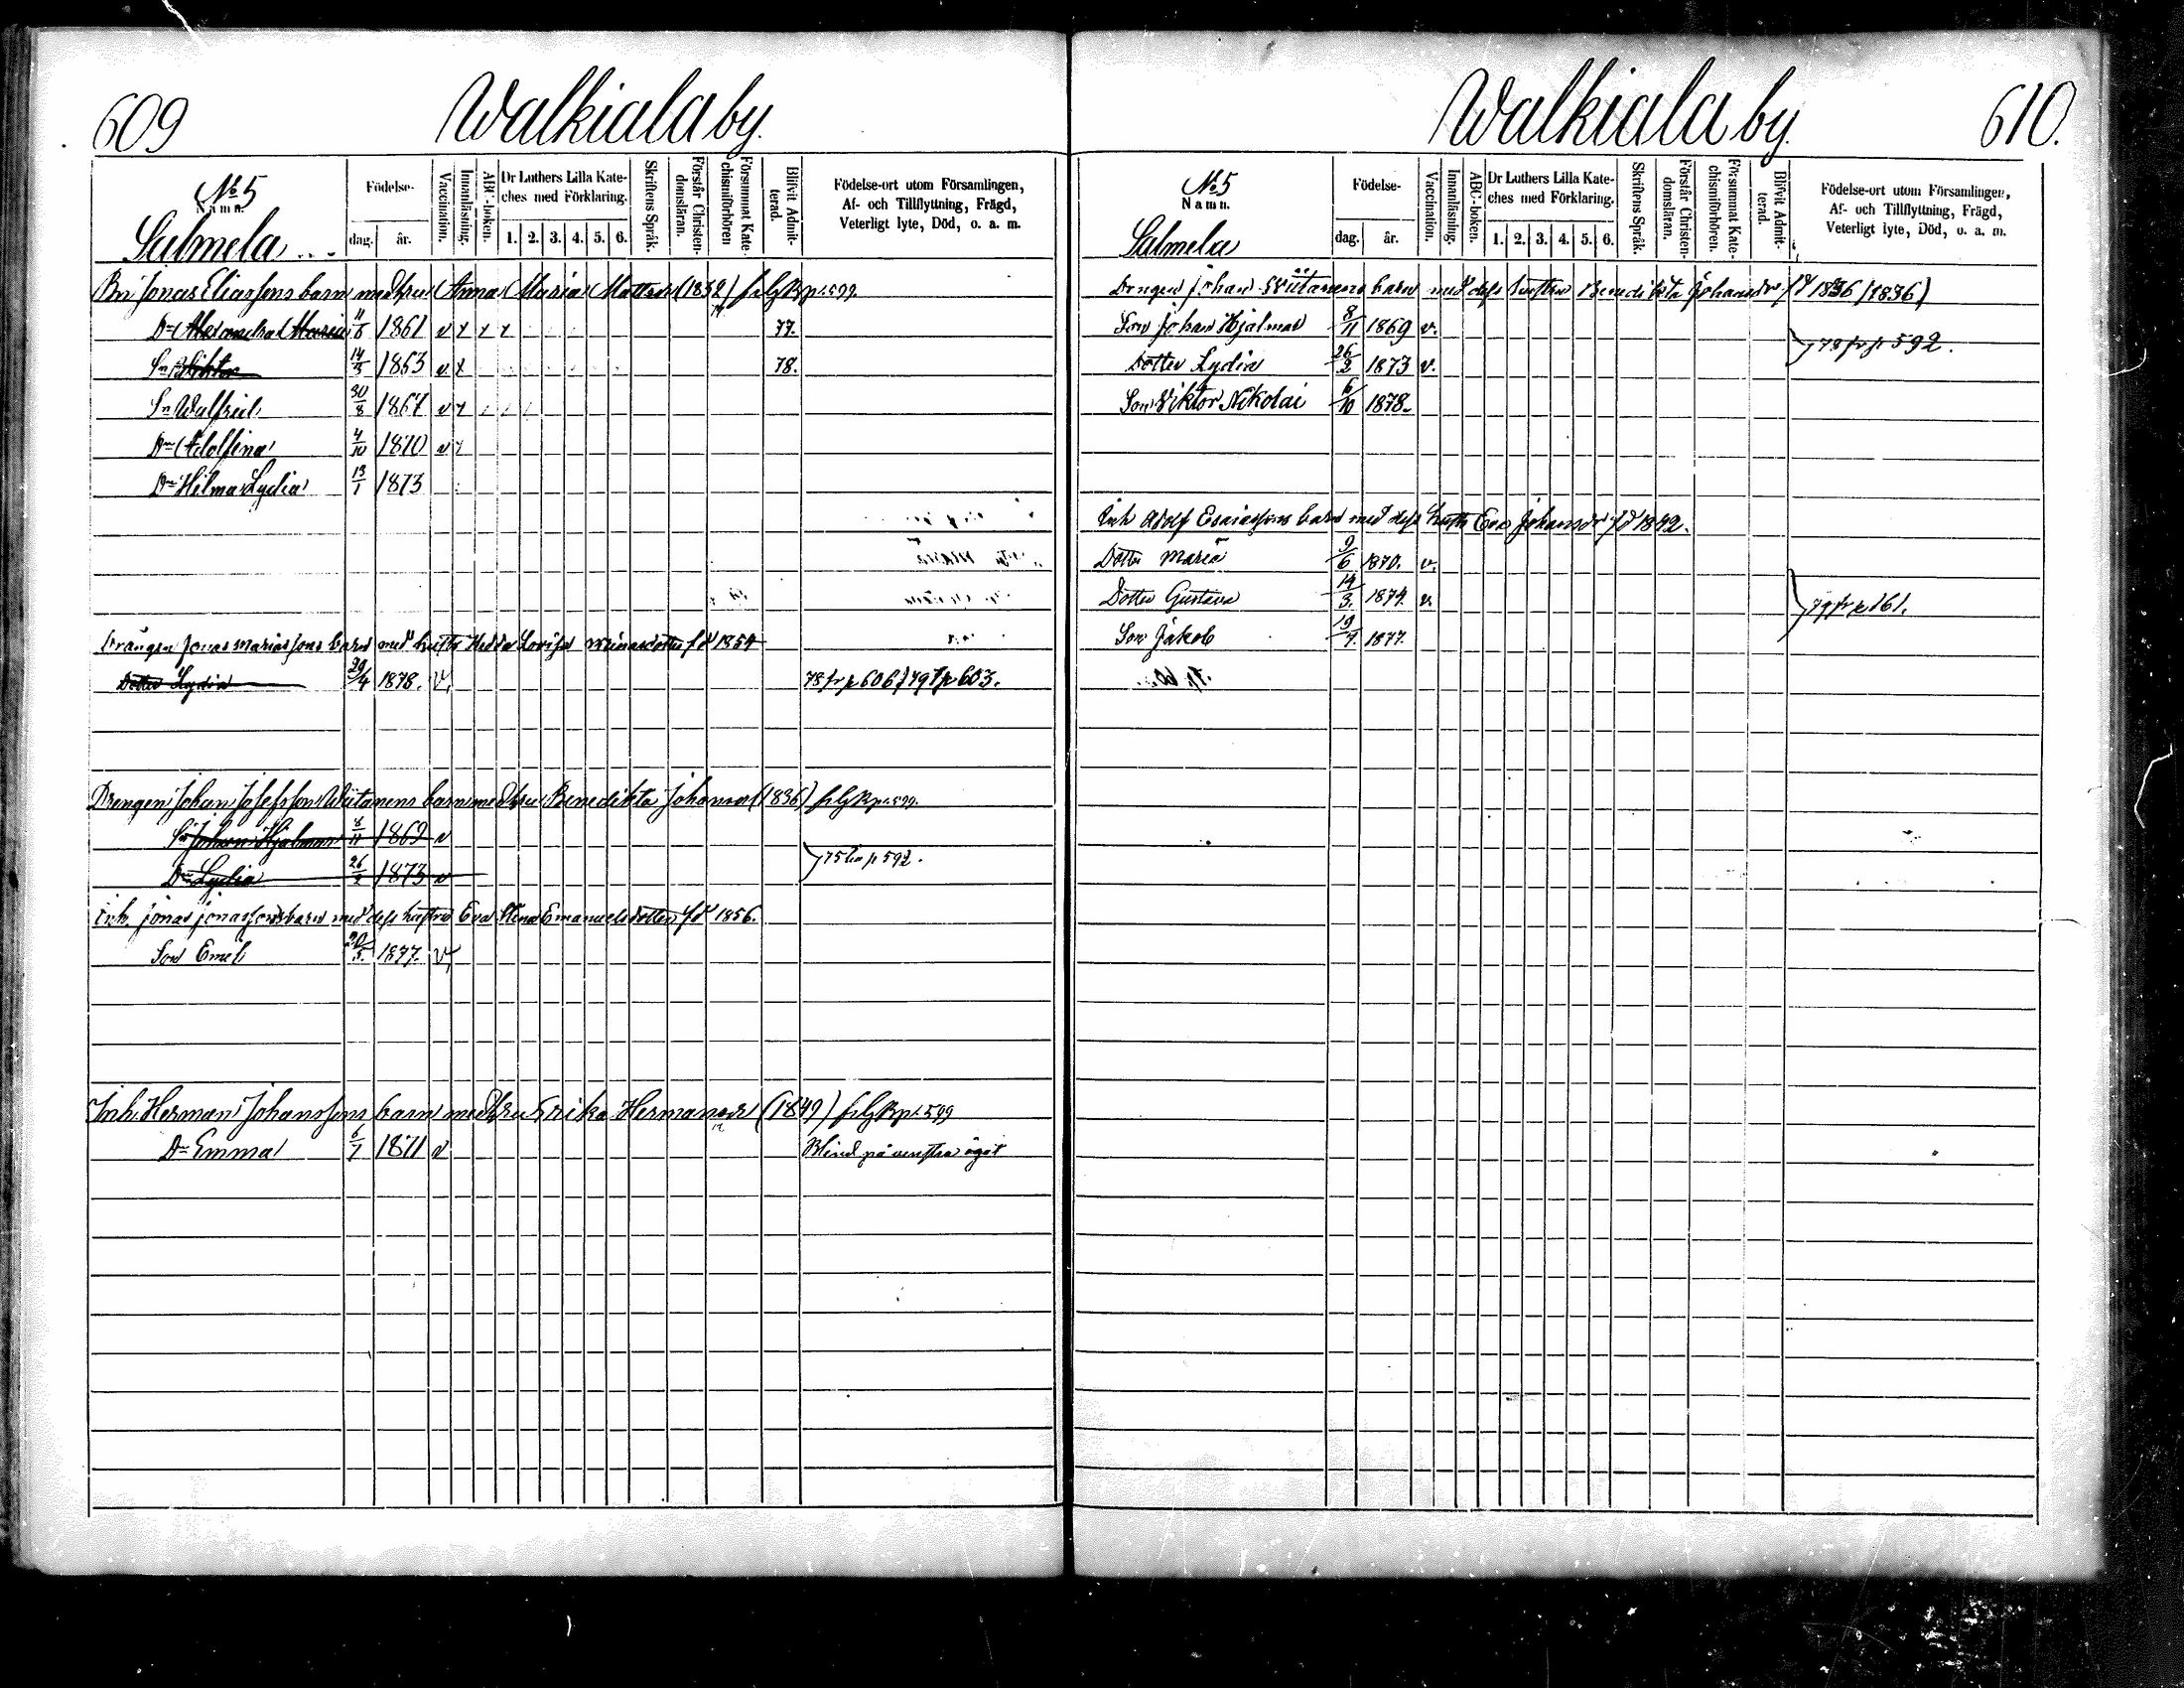 609
Walkiala by.
No 5
Namn.
Salmela
Födelse-
dag.
år.
Vaccination.
Innanläsning.
ABC-boken.
Dr Luthers Lilla Kate-
ches med Förklaring.
1. 2. 3. 4. 5. 6.
Skriftens Språk.
Förstår Christen-
domsläran.
Försummat Kate-
chismiförhören
Blifvit Admit-
terad.
Födelse-ort utom Församlingen,
Af- och Tillflyttning, Frägd,
Veterligt lyte, Död, o. a. m.
Bn Jonas Eliassons barn med hru Anna Maria Mattsdr (1832) p. 599.
Dr Alexandra Maria 11/5 1861 v x x x 77.
Sn Viktor 14/5 1863 v x 78.
Sn Walfrid 30/8 1867 v x
Dr Adolfina 4/10 1870 v x
Dr Hilma Lydia 13/1 1873
Drängen Jonas Mariassons barn med hustru Hedda Lovisa fd 1854
Dotter Lydia 29/4 1878. v. 78 fr p 606 / 79 t p 603.
Drengen Johan Josefsson Wiitanens barn med hru Benedikta Johansdr (1836) p. 599.
Sn Johan Hjalmar 8/11 1869 v
Dr Lydia 26/2 1873 v
} 75 till p 592.
Inh. Jonas Jonassons barn med dess hustru Eva Stina Emanuelsdotter fd 1856.
Son Emel 20/5. 1877. v.
Inh. Herman Johanssons barn med hru Erika Hermansdr (1849) p. 599
Dr Emma 6/7 1871 v Blind på venstra ögat
Walkiala by.
610.
No 5
Namn.
Salmela
Födelse-
dag.
år.
Vaccination.
Innanläsning.
ABC-boken.
Dr Luthers Lilla Kate-
ches med Förklaring.
1. 2. 3. 4. 5. 6.
Skriftens Språk.
Förstår Christen-
domsläran.
Försummat Kate-
chismiförhören.
Blifvit Admit-
terad.
Födelse-ort utom Församlingen,
Af- och Tillflyttning, Frägd,
Veterligt lyte, Död, o. a. m.
Drengen Johan Wiitanens barn med dess hustru Benedikta Johansdr fd 1836 (1836)
Son Johan Hjalmar 8/11 1869 v.
} 78 fr p 592.
Dotter Lydia 26/2 1873 v.
Son Viktor Nikolai 6/10 1878.
Inh Adolf Esaiassons barn med dess hustru Eva Johansdr fd 1842.
Dotter Maria 9/6 1870. v.
Dotter Gustava 14/3. 1874. v.
} 79 fr p 161.
Son Jakob 19/7. 1877.